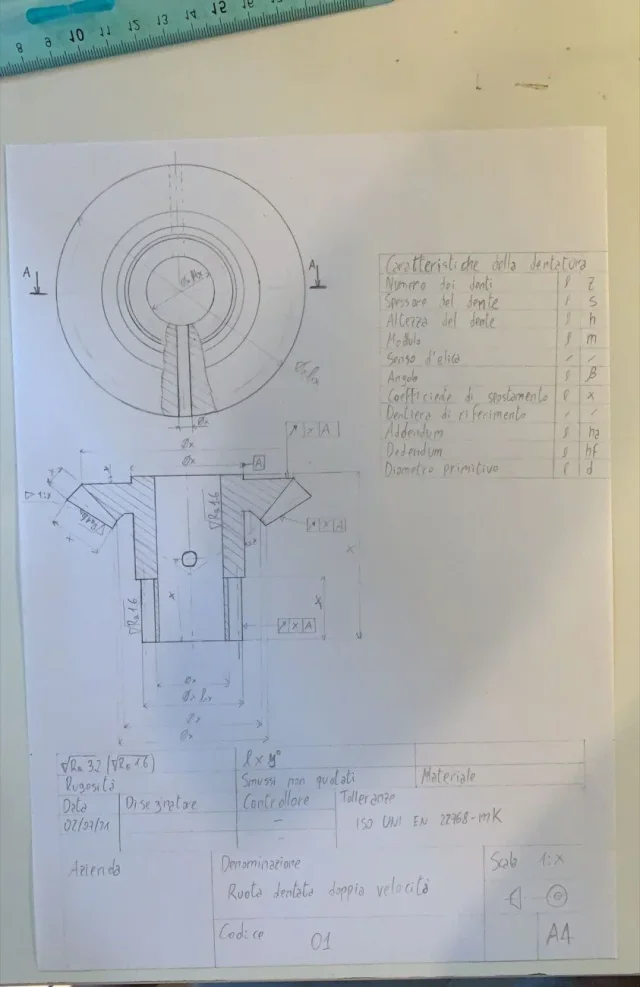 8 9 10 11 12 13 14 15 16 17
A
A
Øx
Caratteristiche della dentatura
Numero dei denti l z
Spessore del dente / s
Altezza del dente l h
Modulo l m
Senso d'elica / /
Angolo l β
Coefficiente di spostamento l x
Dentiera di riferimento / /
Addendum l ha
Dedendum l hf
Diametro primitivo l d
Øx
x A
Øx
A
x
Ra 1.6
x A
Ra 1.6
x
x
x
Ra 1.6
x A
Øx
Øx
Øx
Ra 3.2 (Ra 1.6)
Rugosità
l x y°
Smussi non quotati
Materiale
Data
02/07/21
Disegnatore
Controllore
-
-
Tolleranze
ISO UNI EN 22768-mK
Azienda
Denominazione
Ruota dentata doppia velocità
Codice
01
Scala 1:x
A4